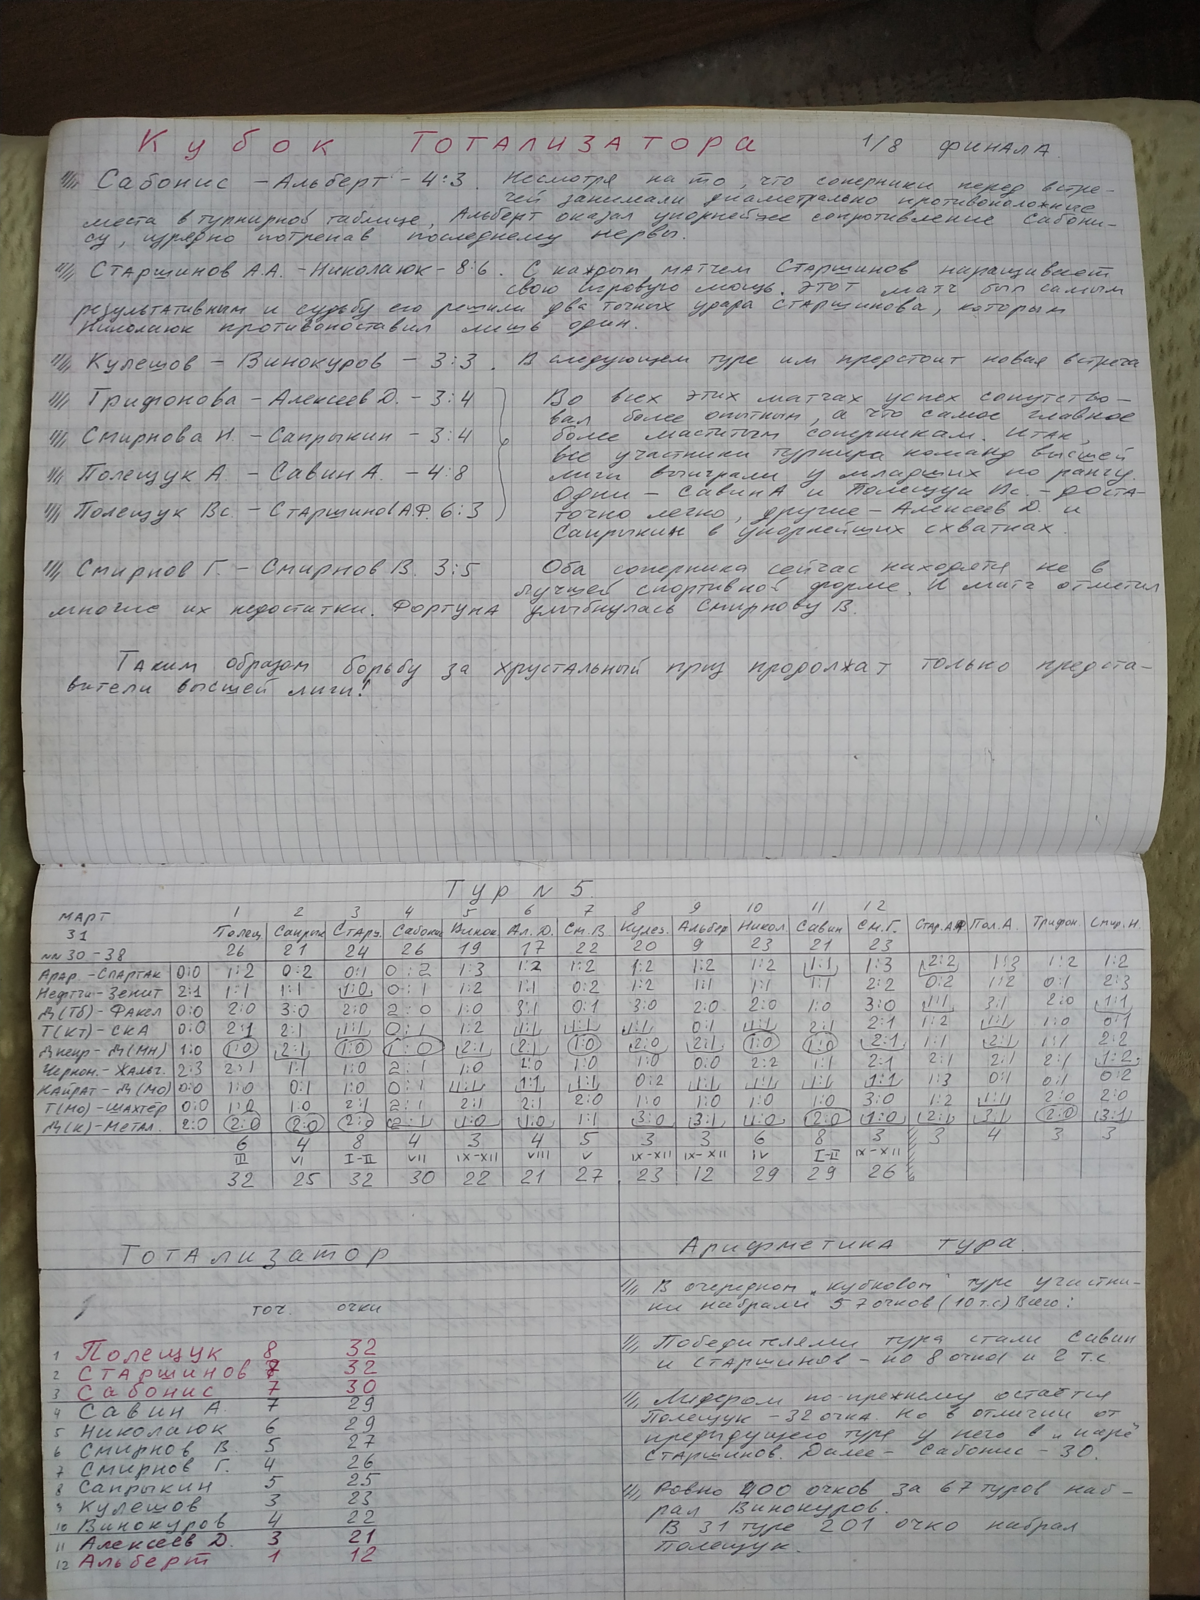 Кубок Тотализатора 1/8 финала
Сабонис – Альберт – 4:3. Несмотря на то, что соперники перед встре-
чей занимали диаметрально противоположные
места в турнирной таблице, Альберт оказал упорнейшее сопротивление Сабони-
су, изрядно потрепав последнему нервы.
Старшинов А.А. – Николаюк – 8:6. С каждым матчем Старшинов наращивает
свою игровую мощь. Этот матч был самым
результативным и судьбу его решили два точных удара Старшинова, которым
Николаюк противопоставил лишь один.
Кулешов – Винокуров – 3:3. В следующем туре им предстоит новая встреча
Трифонова – Алексеев Д. – 3:4 Во всех этих матчах успех сопутство-
вал более опытным, а что самое главное
Смирнова Н. – Сапрыкин – 3:4 более маститым соперникам. Итак,
все участники турнира команд высшей
Полещук А. – Савин А. – 4:8 лиги выиграли у младших по рангу.
Одни – Савин А и Полещук Вс. – доста-
Полещук Вс – Старшинов А.Ф. 6:3 точно легко, другие – Алексеев Д. и
Сапрыкин в упорнейших схватках.
Смирнов Г. – Смирнов В. 3:5 Оба соперника сейчас находятся не в
лучшей спортивной форме. И матч отметил
многие их недостатки. Фортуна улыбнулась Смирнову В.
Таким образом борьбу за хрустальный приз продолжат только предста-
вители высшей лиги!
Тур № 5
1 2 3 4 5 6 7 8 9 10 11 12
Март Полещ Сапрык Старш Сабони Винок. Ал. Д. См. В Кулеш. Альбер Никол. Савин См. Г. Стар. АФ Пол. А. Трифон. Смир. Н.
31
NN 30-38 26 21 24 26 19 17 22 20 9 23 21 23
Арар. – Спартак 0:0 1:2 0:2 0:1 0:2 1:3 1:2 1:2 1:2 1:2 1:2 1:1 1:3 2:2 1:3 1:2 1:2
Нефтчи – Зенит 2:1 1:1 1:1 1:0 0:1 1:2 1:1 0:2 1:2 1:1 1:1 1:1 2:2 0:2 1:2 0:1 2:3
Д(Тб) – Факел 0:0 2:0 3:0 2:0 2:0 1:0 3:1 0:1 3:0 2:0 2:0 1:0 3:0 1:1 3:1 2:0 1:1
Т(Кт) – СКА 0:0 2:1 2:1 1:1 0:1 1:2 1:1 1:1 1:1 0:1 1:1 2:1 2:1 1:2 1:1 1:0 0:1
Днепр – Д(Мн) 1:0 1:0 2:1 1:0 1:0 2:1 2:1 1:0 2:0 2:1 1:0 1:0 2:1 1:1 2:1 1:1 2:2
Черном. – Жальг. 2:3 2:1 1:1 1:0 2:1 1:0 1:0 1:0 1:0 0:0 2:2 1:1 2:1 2:1 2:1 2:1 1:2
Кайрат – Д(Мо) 0:0 1:0 0:1 1:0 0:1 1:1 1:1 1:1 0:2 1:1 1:1 1:1 1:1 1:3 0:1 0:1 0:2
Т(Мо) – Шахтер 0:0 1:0 1:0 2:1 2:1 2:1 2:1 2:0 1:0 1:0 1:0 1:0 3:0 1:2 1:1 2:0 2:0
Д(К) – Метал. 2:0 2:0 2:0 2:0 2:1 1:0 1:0 1:1 3:0 3:1 1:0 2:0 1:0 2:1 3:1 2:0 3:1
6 4 8 4 3 4 5 3 3 6 8 3 3 4 3 3
III VI I-II VII IX-XII VIII V IX-XII IX-XII IV I-II IX-XII
32 25 32 30 22 21 27 23 12 29 29 26
Тотализатор
точ. очки
1 Полещук 8 32
2 Старшинов 7 32
3 Сабонис 7 30
4 Савин А. 7 29
5 Николаюк 6 29
6 Смирнов В. 5 27
7 Смирнов Г. 4 26
8 Сапрыкин 5 25
9 Кулешов 3 23
10 Винокуров 4 22
11 Алексеев Д. 3 21
12 Альберт 1 12
Арифметика тура
В очередном „кубковом" туре участни-
ки набрали 57 очков (10 т.с) Всего:
Победителями тура стали Савин
и Старшинов – по 8 очков и 2 т.с
Лидером по-прежнему остаётся
Полещук – 32 очка. Но в отличии от
предыдущего туре у него в „паре"
Старшинов. Далее – Сабонис – 30.
Ровно 400 очков за 67 туров наб-
рал Винокуров.
В 31 туре 201 очко набрал
Полещук.